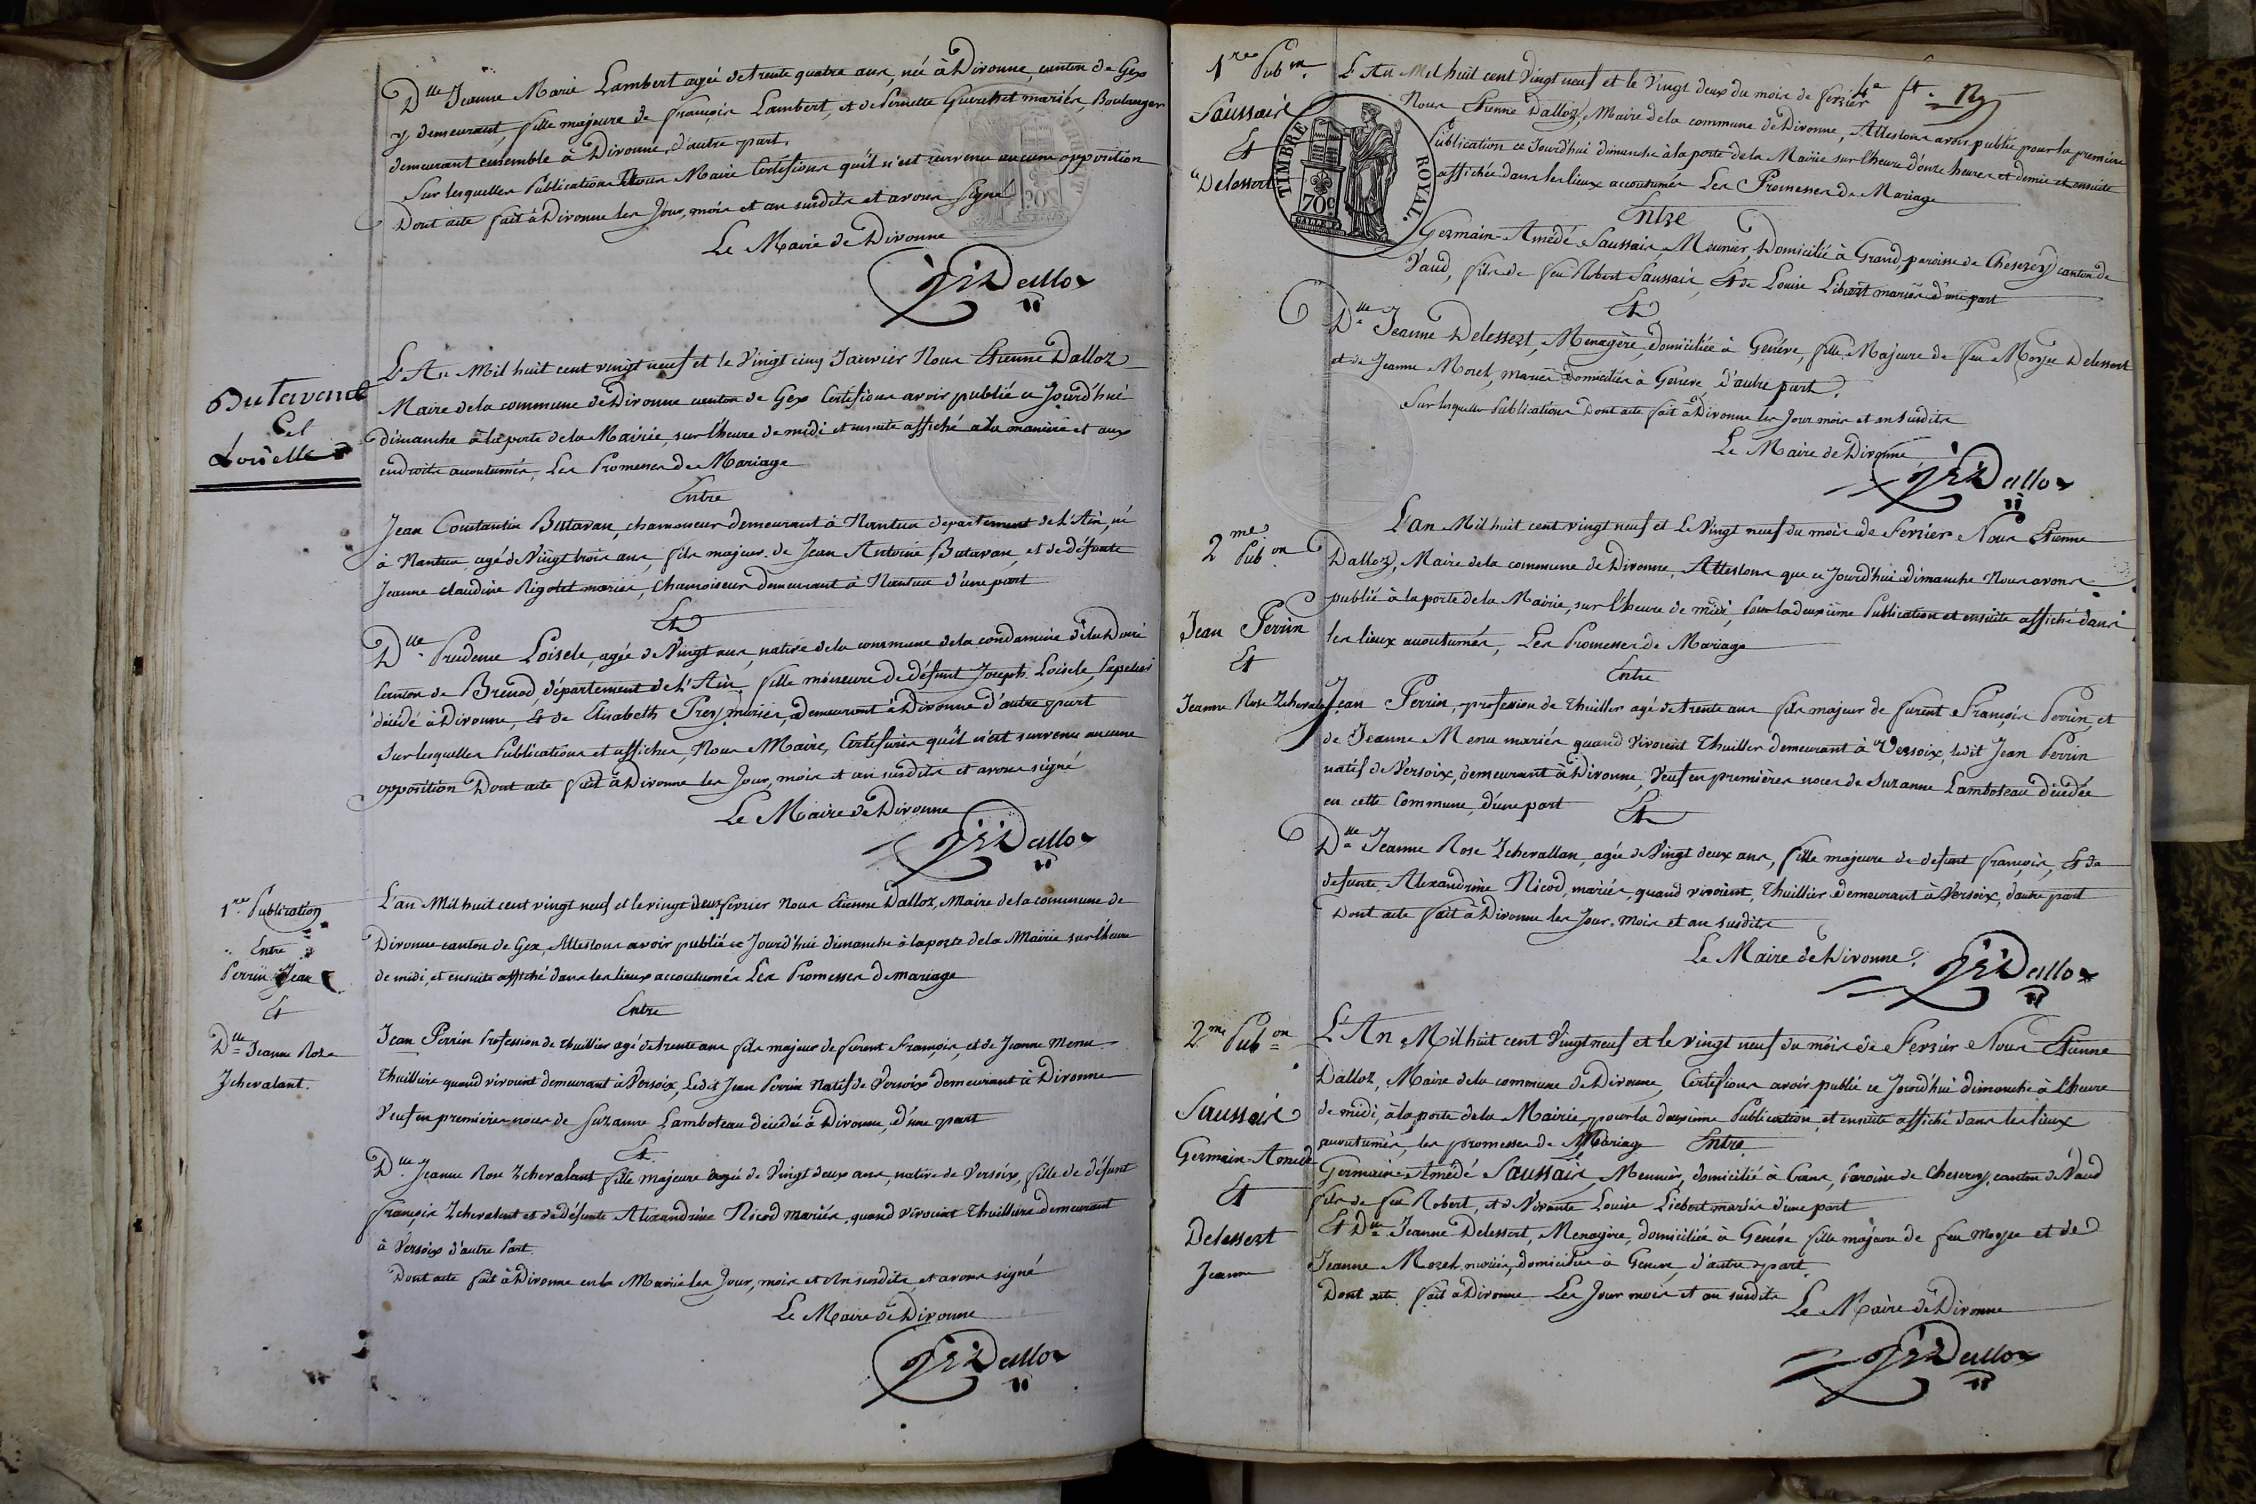 Dlle Jeanne Marie Lambert agée de trente quatre ans, née à Divonne, canton de Gex
y demeurant, fille majeure de françois Lambert, et de Pernette mariés, Boulanger
demeurant ensemble à Divonne, d'autre part.
Sur lesquelles Publications Nous Maire Certifions qu'il n'est survenu aucune opposition
Dont acte fait à Divonne les Jour, mois et an susdits et avons signé
Le Maire de Divonne
Dalloz
Butavand
Et
Loiselle
L'An Mil huit cent vingt neuf et le Vingt cinq Janvier Nous Etienne Dalloz
Maire de la commune de Divonne canton de Gex Certifions avoir publié ce Jourd'hui
dimanche à la porte de la Mairie, sur l'heure de midi et ensuite affiché a la manière et aux
endroits accoutumés, Les Promesses de Mariage
Entre
Jean Constantin Butavan, chamoiseur demeurant à Nantua département de l'Ain, né
à Nantua, agé de Vingt trois ans, fils majeur de Jean Antoine Butavan, et de défunte
Jeanne claudine Rigolet mariés, Chamoiseur demeurant à Nantua d'une part
Et
Dlle Prudence Loisele, agée de Vingt ans, native de la commune de la condamine de la Doie
Canton de Brenod, département de l'Ain, fille mineure de défunt Joseph Loisele, Papetier
décédé à Divonne, Et de Elisabeth Prey mariés, demeurant à Divonne d'autre part
Sur lesquelles Publications et affiches, Nous Maire, Certifions qu'il n'est survenu aucune
opposition Dont acte fait à Divonne les Jour, mois et an susdits et avons signé
Le Maire de Divonne
Dalloz
1re Publication
Entre
Perrin Jean
Et
Dlle Jeanne Rose
Zchevalant.
L'an Mil huit cent vingt neuf et le vingt deux fevrier Nous Etienne Dalloz, Maire de la commune de
Divonne canton de Gex, Attestons avoir publié ce Jourd'hui dimanche à la porte de la Mairie sur l'heure
de midi, et ensuite affiché dans les lieux accoutumés Les Promesses de mariage
Entre
Jean Perrin Profession de thuillier agé de trente ans fils majeur de furent François, et de Jeanne Menu
Thuilliers quand vivoient demeurant à Versoix, Ledit Jean Perrin Natif de Versoix demeurant à Divonne
Veuf en premières noces de Suzanne Lamboteau décédée à Divonne, d'une part
Et
Dlle Jeanne Rose Zchevalant fille majeure agée de Vingt deux ans, native de Versoix, fille de défunt
François Zchevalent et de défunte Alexandrine Nicod mariés, quand vivoient Thuilliers demeurant
à Versoix d'autre Part.
Dont acte fait à Divonne en la Mairie les Jour, mois et An susdits, et avons signé
Le Maire de Divonne
Dalloz
1re Pubon
Saussais
Et
Delessert
4e ft.
TIMBRE ROYAL.
70c
L'An Mil huit cent Vingt neuf et le Vingt deux du mois de fevrier
Nous Etienne Dalloz, Maire de la commune de Divonne, Attestons avoir publié pour la première
Publication ce Jourd'hui dimanche à la porte de la Mairie sur l'heure d'onze heures et demie et ensuite
affichée dans les lieux accoutumés Les Promesses de Mariage
Entre
Germain Amédé Saussais Meunier, Domicilié à Grand, paroisse de Cheserey canton de
Vaud, fils de feu Robert Saussais, Et de Louise Liebert mariés d'une part
Et
Dlle Jeanne Delessert, Menagère, domiciliée à Genéve, fille Majeure de feu Moyse Delessert
et de Jeanne Morel, mariés domiciliés à Geneve d'autre part.
Sur lesquelles Publications Dont acte fait à Divonne les Jour mois et an susdits
Le Maire de Divonne
Dalloz
2me Pubon
Jean Perrin
Et
Jeanne Rose Zchevalan
L'an Mil huit cent vingt neuf et Le Vingt neuf du mois de Fevrier Nous Etienne
Dalloz, Maire de la commune de Divonne, Attestons que ce Jourd'hui dimanche Nous avons
publié à la porte de la Mairie, sur l'heure de midi, Pour la deuxième Publication et ensuite affiché dans
les lieux accoutumés, Les Promesses de Mariage
Entre
Jean Perrin, profession de Thuillier agé de trente ans fils majeur de furent François Perrin, et
de Jeanne Menu mariés quand vivoient Thuillier demeurant à Versoix, ledit Jean Perrin
natif de Versoix, demeurant à Divonne, Veuf en premières noces de Suzanne Lamboteau décédée
en cette Commune, d'une part
Et
Dlle Jeanne Rose Zchevallan, agée de Vingt deux ans, fille majeure de defunt françois, Et de
defunte Alexandrine Nicod, mariés, quand vivoient, Thuillier demeurant à Versoix, d'autre part
Dont acte fait à Divonne les Jour, Mois et an susdits
Le Maire de Divonne
Dalloz
2me Pubon
Saussais
Germain Amedé
Et
Delessert
Jeanne
L'An Mil huit cent Vingt neuf et le vingt neuf du mois de Fevrier Nous Etienne
Dalloz, Maire de la commune de Divonne, Certifions avoir publié ce Jourd'hui dimanche à l'heure
de midi, à la porte de la Mairie, pour la deuxième Publication et ensuite affiché dans les lieux
accoutumés, les promesses de Mariage Entre
Germain Amédé Saussais Meunier, domicilié à Crans, Paroisse de Cheserey, canton de Vaud
fils de feu Robert, et de Vivante Louise Liebert mariés d'une part
Et Dlle Jeanne Delessert, Menagère, domiciliée à Genéve fille majeure de feu Moyse et de
Jeanne Morel mariés, domiciliés à Geneve, d'autre part.
Dont acte fait à Divonne Les Jour mois et an susdits
Le Maire de Divonne
Dalloz